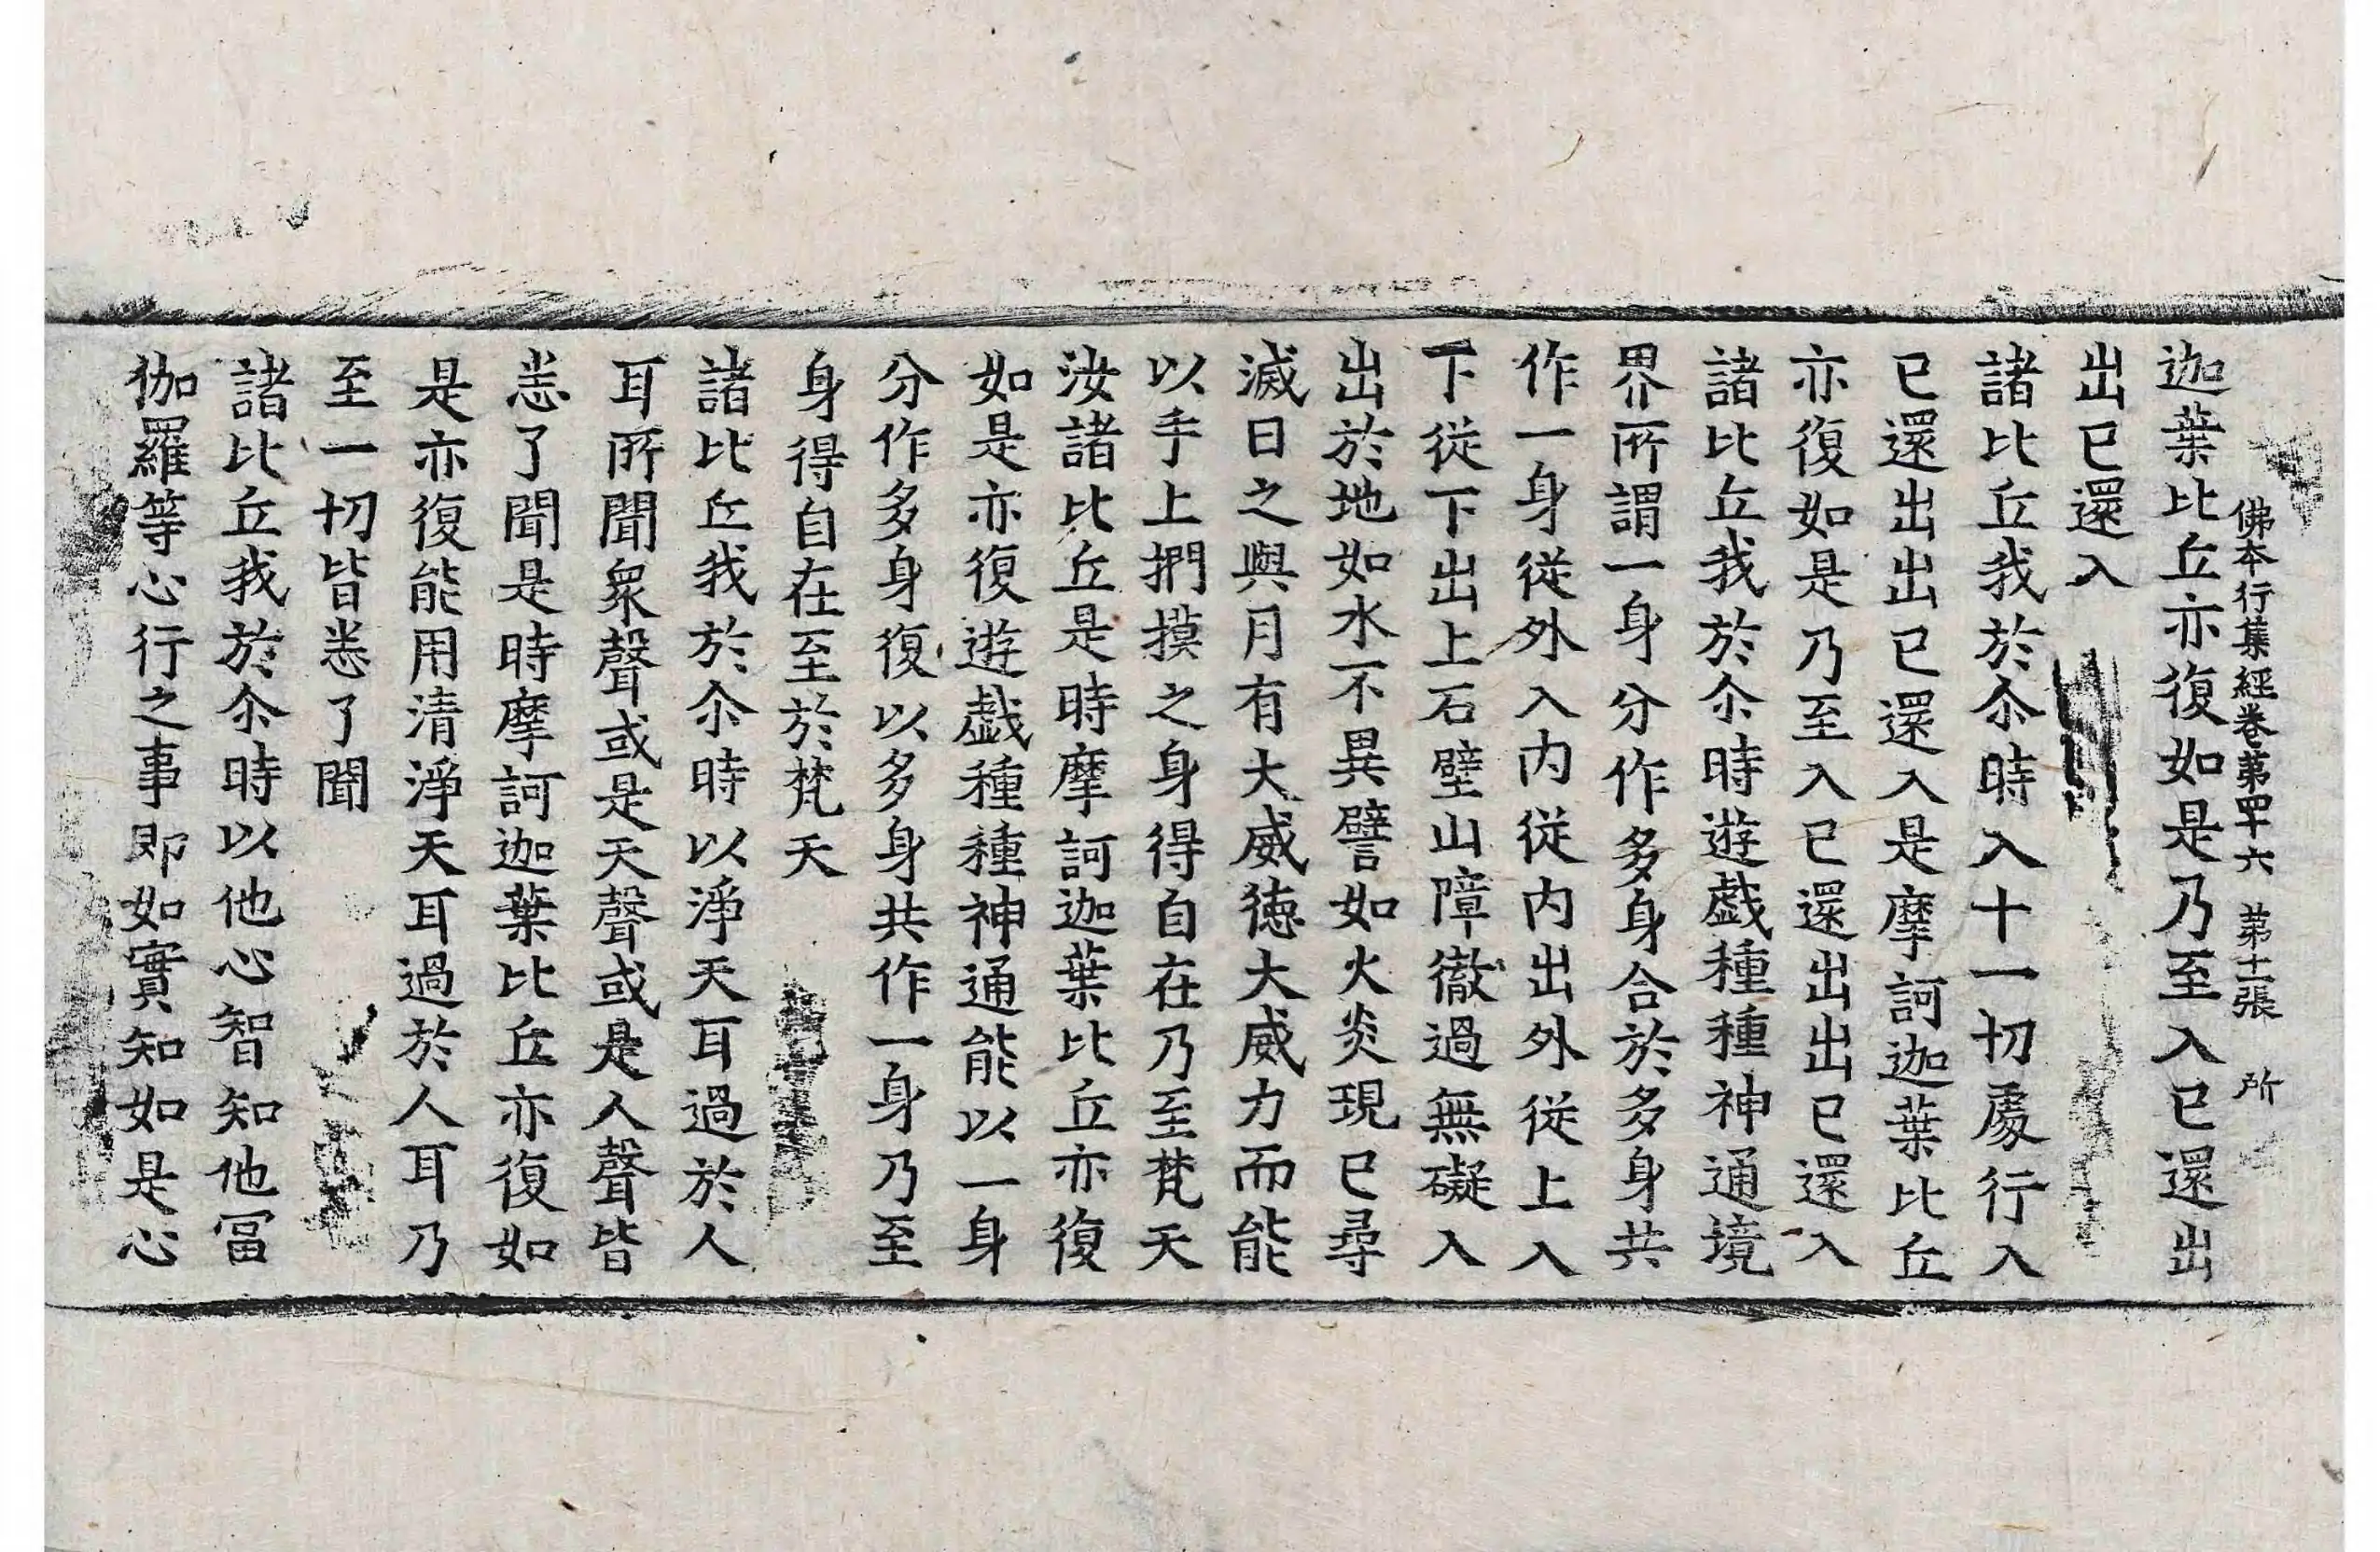 佛本行集經卷第四十六 第十二張 所
迦葉比丘亦復如是乃至入已還出
出已還入
諸比丘我於尒時入十一切處行入
已還出出已還入是摩訶迦葉比丘
亦復如是乃至入已還出出已還入
諸比丘我於尒時遊戲種種神通境
界所謂一身分作多身合於多身共
作一身從外入內從內出外從上入
下從下出上石壁山障徹過無礙入
出於地如水不異譬如火炎現已尋
滅日之與月有大威德大威力而能
以手上捫摸之身得自在乃至梵天
汝諸比丘是時摩訶迦葉比丘亦復
如是亦復遊戲種種神通能以一身
分作多身復以多身共作一身乃至
身得自在至於梵天
諸比丘我於尒時以淨天耳過於人
耳所聞衆聲或是天聲或是人聲皆
悉了聞是時摩訶迦葉比丘亦復如
是亦復能用清淨天耳過於人耳乃
至一切皆悉了聞
諸比丘我於尒時以他心智知他冨
伽羅等心行之事即如實知如是心